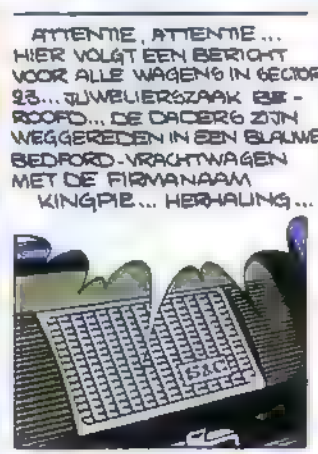 ATTENTIE, ATTENTIE...
HIER VOLGT EEN BERICHT
VOOR ALLE WAGENS IN SECTOR
23... JUWELIERSZAAK BE-
ROOFD... DE DADERS ZIJN
WEGGEREDEN IN EEN BLAUWE
BEDFORD-VRACHTWAGEN
MET DE FIRMANAAM
KINGPIE... HERHALING...
S&C